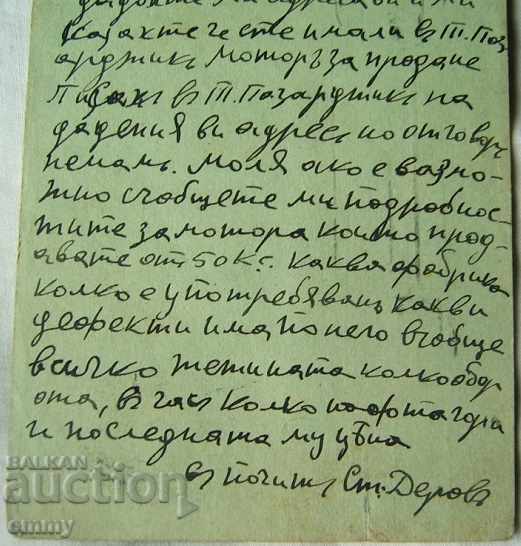 казахте че сте имали въ Т. Паз
арджикъ моторъ за продане
Писахъ въ Т. Пазарджикъ на
дадения ви адресъ но отговоръ
немамъ. Моля ако е възмо-
жно съобщете ми подробнос-
тите за мотора които прод-
авате от 50 к.с. каква фабрика
колко е употребяванъ какви
дефекти има по него въобще
всичко тежината колко обор
ота, въ часъ колко нафта гори
и последната му цѣна
въ почитъ Ст. Деровъ
BALKAN
auction
emmy